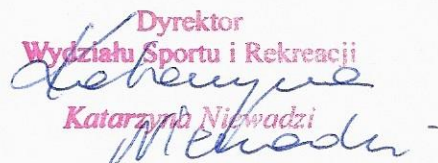 Dyrektor
Wydziału Sportu i Rekreacji
Katarzyna
Katarzyna Niewadzi